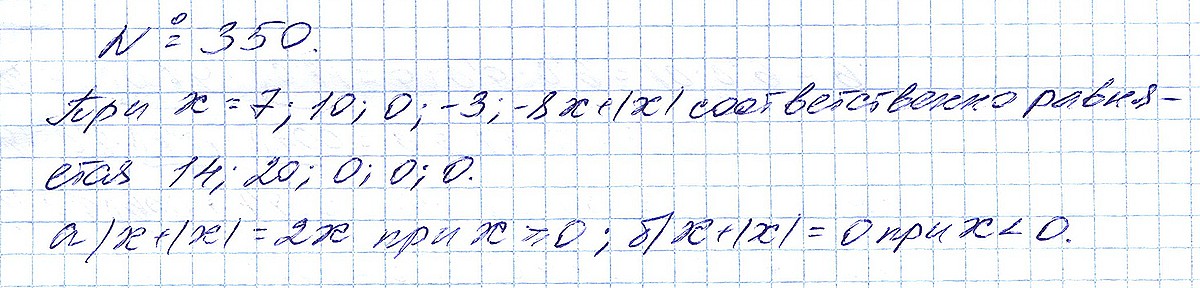 № 350.
При x = 7; 10; 0; -3; -8 x+|x| соответственно равня-
ется 14; 20; 0; 0; 0.
а) x+|x| = 2x при x ≥ 0; б) x+|x| = 0 при x < 0.